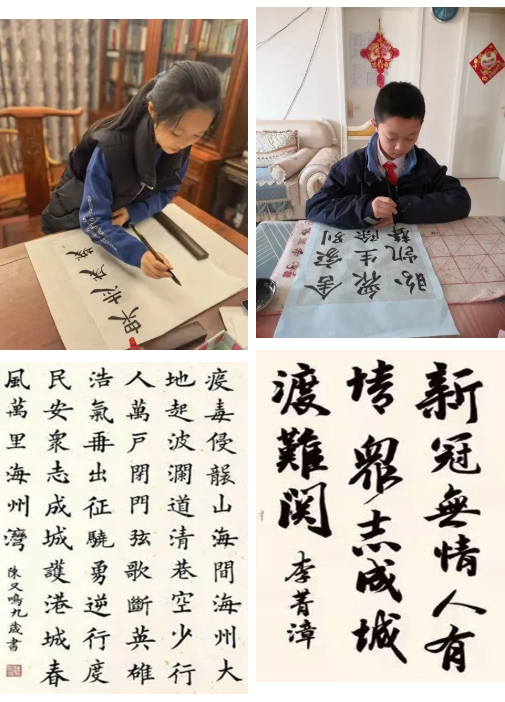 舍家别
衆生除
盼凱
疫毒侵襲山海間海州大
地起波瀾道清巷空少行
人萬戶閉門弦歌斷英雄
浩氣再出征驍勇逆行度
民安衆志成城護港城春
風萬里海州灣
陳又鳴九歲書
新冠無情人有
情眾志成城
渡難関
李菁漳